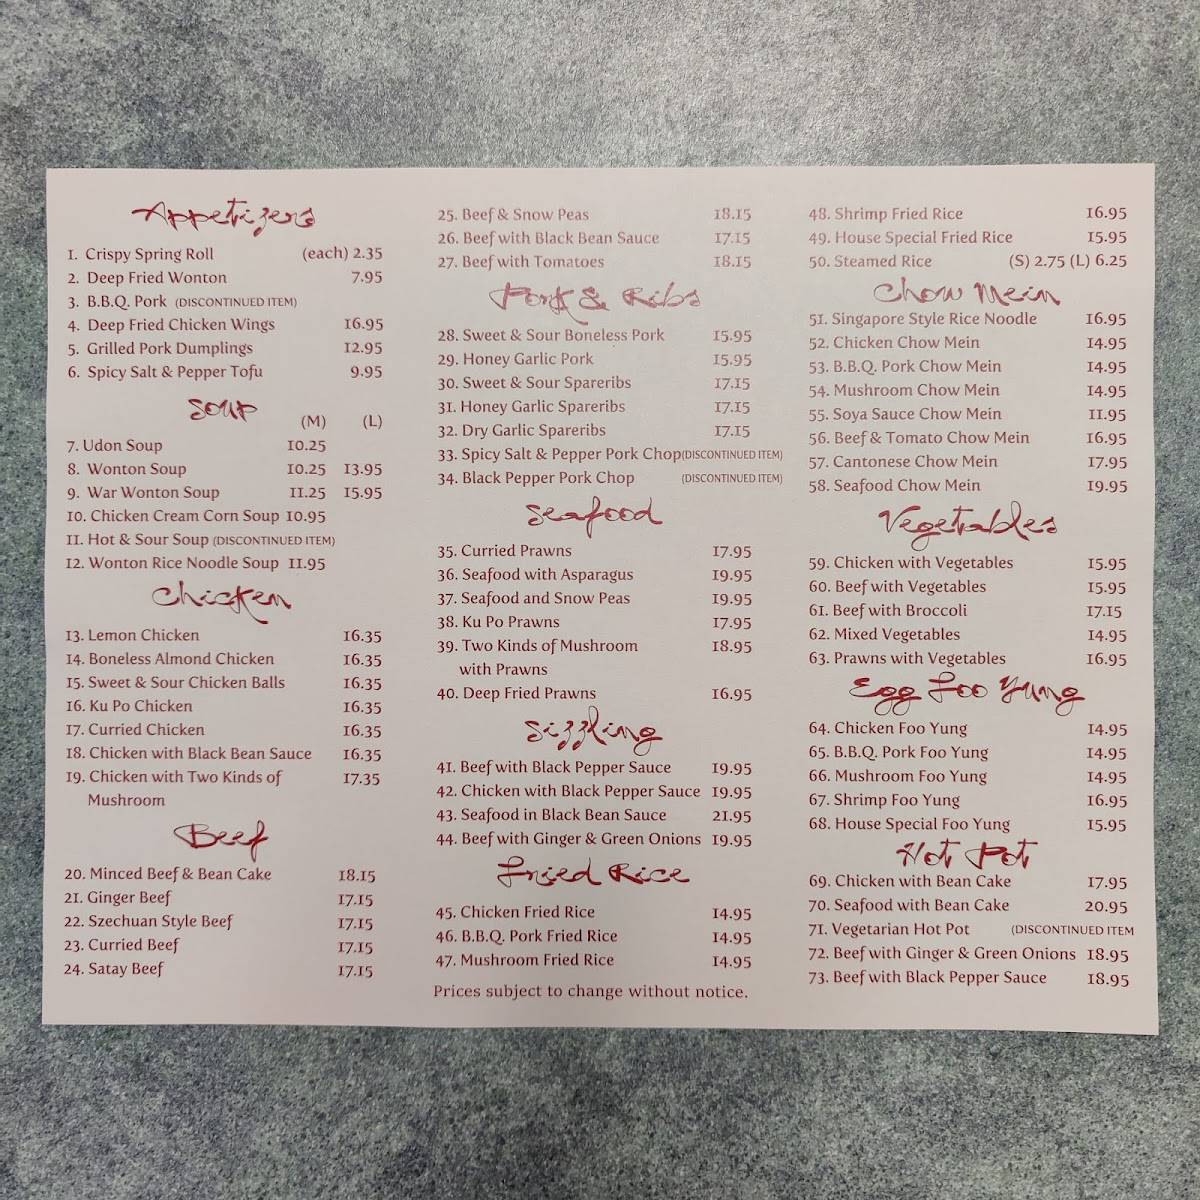 Appetizers
1. Crispy Spring Roll (each) 2.35
2. Deep Fried Wonton 7.95
3. B.B.Q. Pork (DISCONTINUED ITEM)
4. Deep Fried Chicken Wings 16.95
5. Grilled Pork Dumplings 12.95
6. Spicy Salt & Pepper Tofu 9.95
Soup (M) (L)
7. Udon Soup 10.25
8. Wonton Soup 10.25 13.95
9. War Wonton Soup 11.25 15.95
10. Chicken Cream Corn Soup 10.95
11. Hot & Sour Soup (DISCONTINUED ITEM)
12. Wonton Rice Noodle Soup 11.95
Chicken
13. Lemon Chicken 16.35
14. Boneless Almond Chicken 16.35
15. Sweet & Sour Chicken Balls 16.35
16. Ku Po Chicken 16.35
17. Curried Chicken 16.35
18. Chicken with Black Bean Sauce 16.35
19. Chicken with Two Kinds of 17.35
Mushroom
Beef
20. Minced Beef & Bean Cake 18.15
21. Ginger Beef 17.15
22. Szechuan Style Beef 17.15
23. Curried Beef 17.15
24. Satay Beef 17.15
25. Beef & Snow Peas 18.15
26. Beef with Black Bean Sauce 17.15
27. Beef with Tomatoes 18.15
Pork & Ribs
28. Sweet & Sour Boneless Pork 15.95
29. Honey Garlic Pork 15.95
30. Sweet & Sour Spareribs 17.15
31. Honey Garlic Spareribs 17.15
32. Dry Garlic Spareribs 17.15
33. Spicy Salt & Pepper Pork Chop (DISCONTINUED ITEM)
34. Black Pepper Pork Chop (DISCONTINUED ITEM)
Seafood
35. Curried Prawns 17.95
36. Seafood with Asparagus 19.95
37. Seafood and Snow Peas 19.95
38. Ku Po Prawns 17.95
39. Two Kinds of Mushroom 18.95
with Prawns
40. Deep Fried Prawns 16.95
Sizzling
41. Beef with Black Pepper Sauce 19.95
42. Chicken with Black Pepper Sauce 19.95
43. Seafood in Black Bean Sauce 21.95
44. Beef with Ginger & Green Onions 19.95
Fried Rice
45. Chicken Fried Rice 14.95
46. B.B.Q. Pork Fried Rice 14.95
47. Mushroom Fried Rice 14.95
Prices subject to change without notice.
48. Shrimp Fried Rice 16.95
49. House Special Fried Rice 15.95
50. Steamed Rice (S) 2.75 (L) 6.25
Chow Mein
51. Singapore Style Rice Noodle 16.95
52. Chicken Chow Mein 14.95
53. B.B.Q. Pork Chow Mein 14.95
54. Mushroom Chow Mein 14.95
55. Soya Sauce Chow Mein 11.95
56. Beef & Tomato Chow Mein 16.95
57. Cantonese Chow Mein 17.95
58. Seafood Chow Mein 19.95
Vegetables
59. Chicken with Vegetables 15.95
60. Beef with Vegetables 15.95
61. Beef with Broccoli 17.15
62. Mixed Vegetables 14.95
63. Prawns with Vegetables 16.95
Egg Foo Yung
64. Chicken Foo Yung 14.95
65. B.B.Q. Pork Foo Yung 14.95
66. Mushroom Foo Yung 14.95
67. Shrimp Foo Yung 16.95
68. House Special Foo Yung 15.95
Hot Pot
69. Chicken with Bean Cake 17.95
70. Seafood with Bean Cake 20.95
71. Vegetarian Hot Pot (DISCONTINUED ITEM
72. Beef with Ginger & Green Onions 18.95
73. Beef with Black Pepper Sauce 18.95